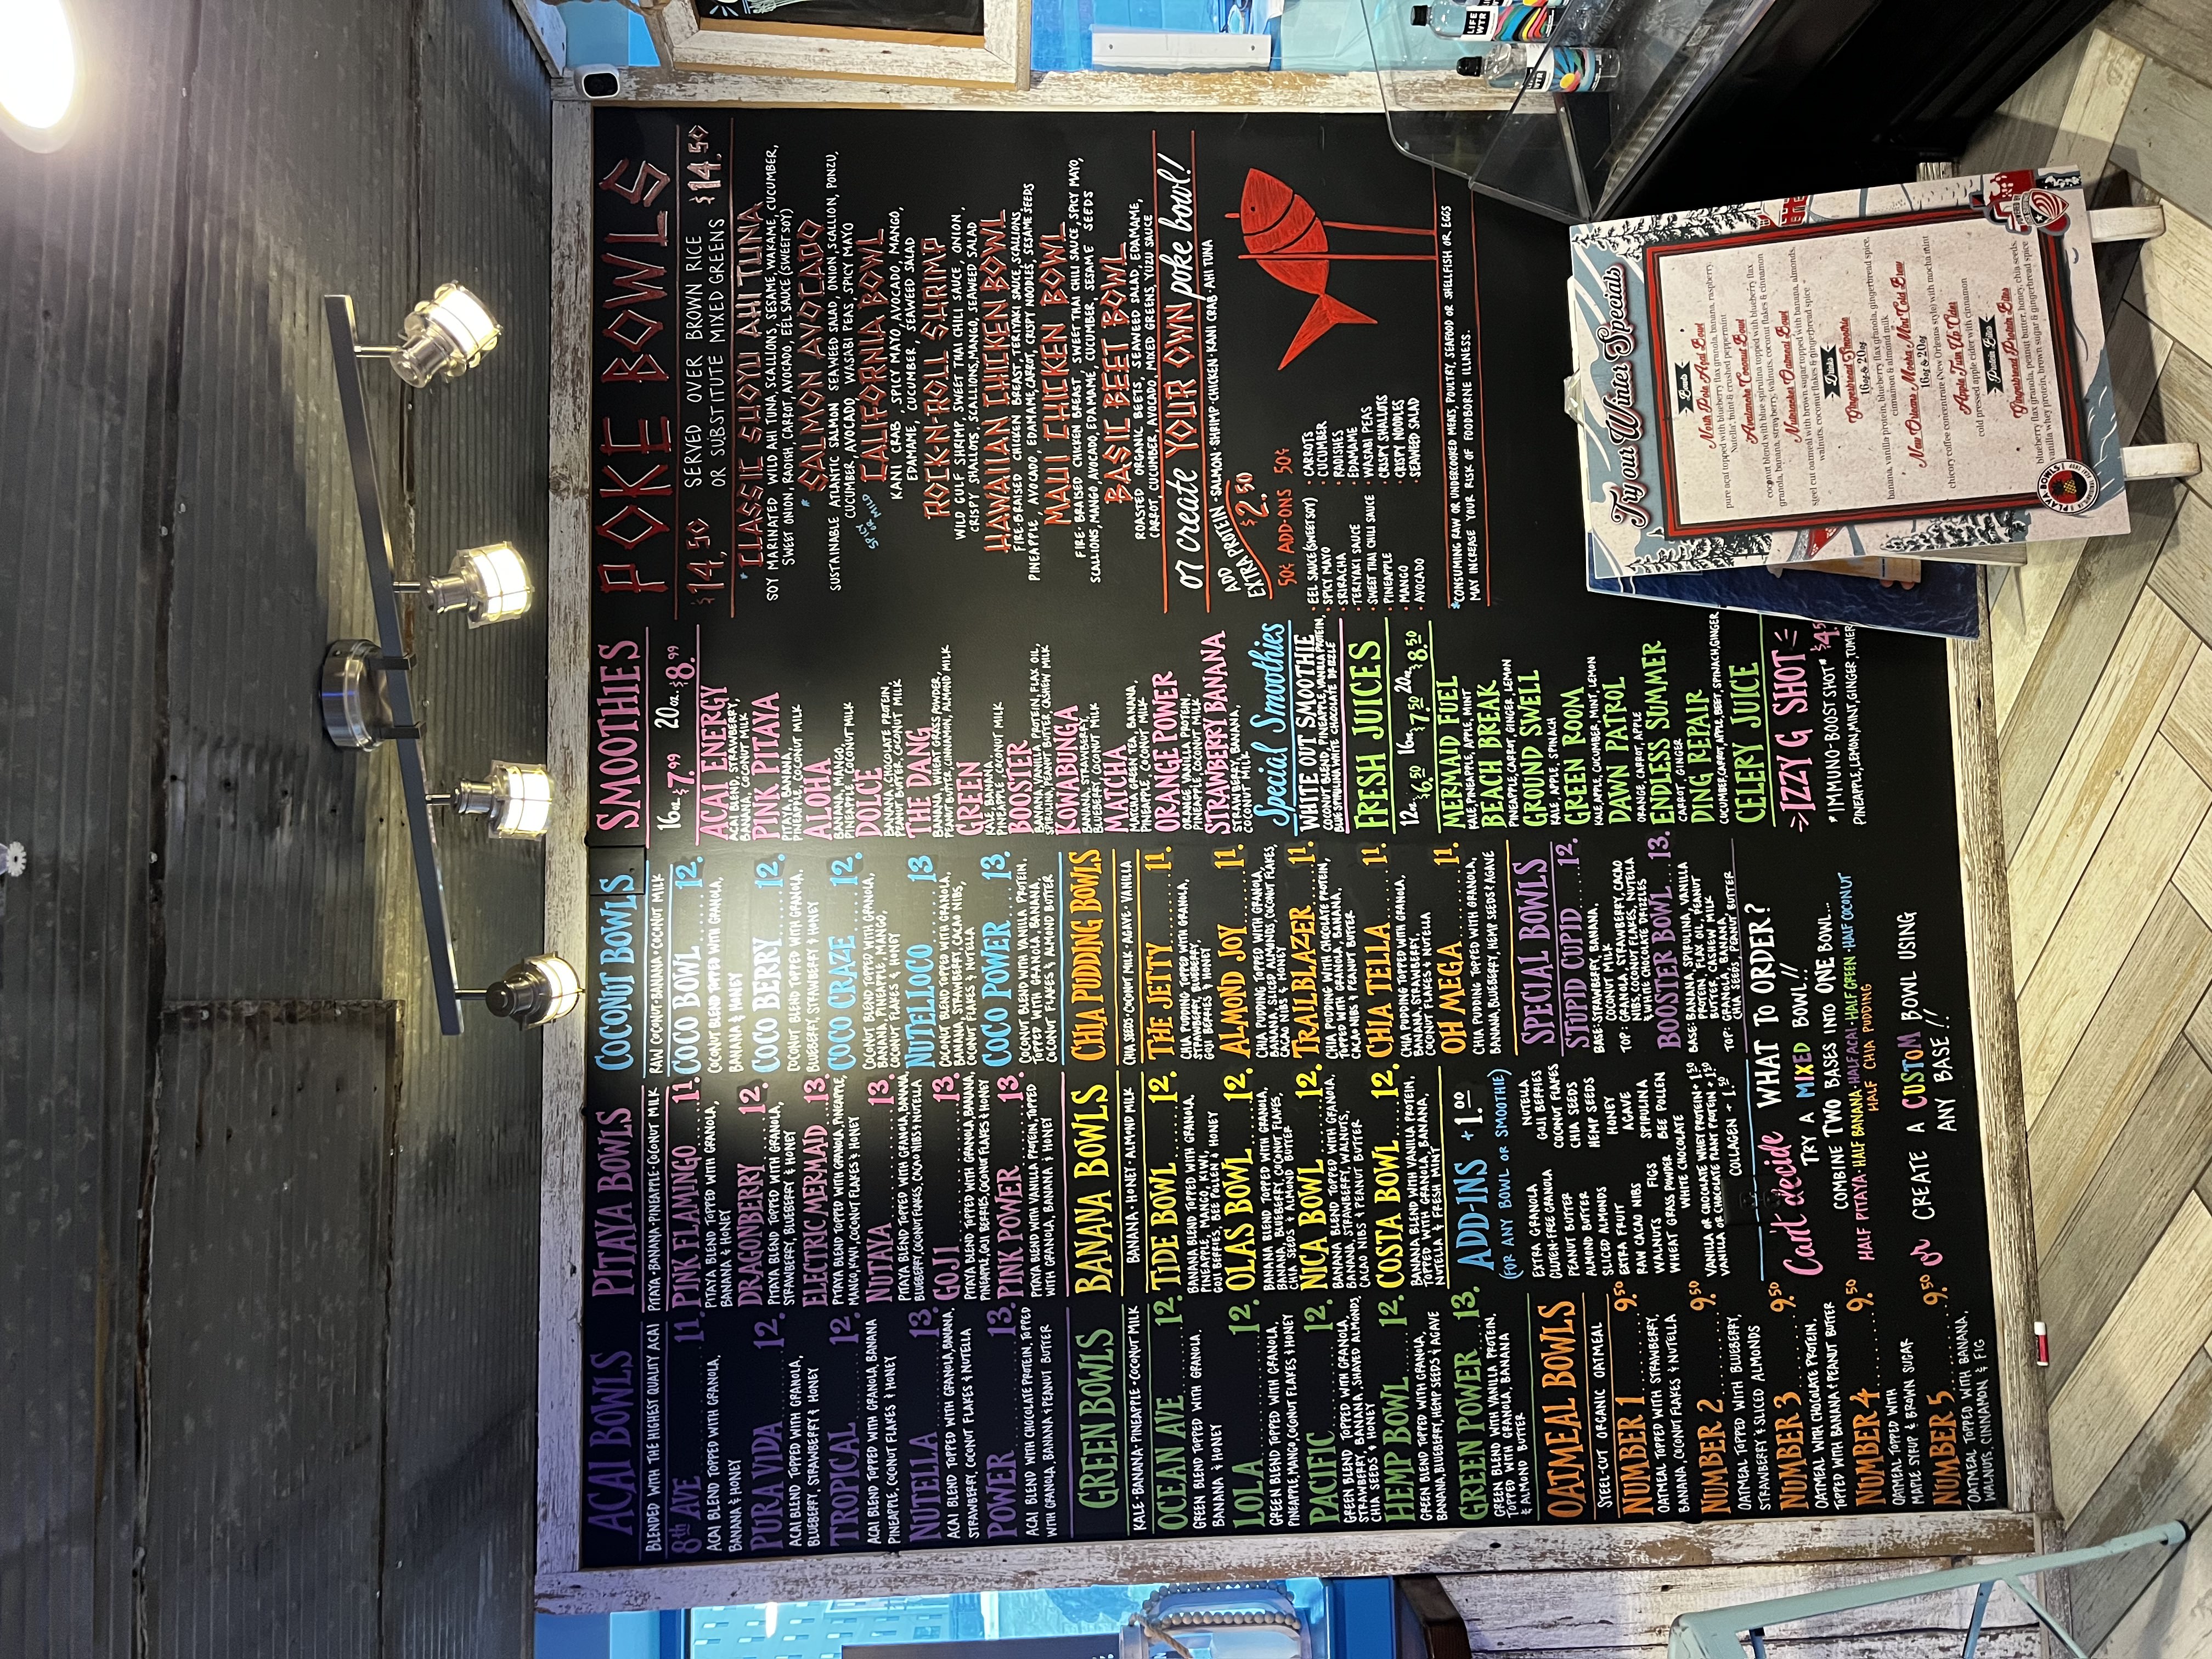 ACAI BOWLS
BLENDED WITH THE HIGHEST QUALITY ACAI
8th AVE 11.
ACAI BLEND TOPPED WITH GRANOLA,
BANANA & HONEY
PURA VIDA ........ 12.
ACAI BLEND TOPPED WITH GRANOLA,
BLUEBERRY, STRAWBERRY & HONEY
TROPICAL ........ 12.
ACAI BLEND TOPPED WITH GRANOLA, BANANA
PINEAPPLE, COCONUT FLAKES & HONEY
NUTELLA ........ 13.
ACAI BLEND TOPPED WITH GRANOLA, BANANA,
STRAWBERRY, COCONUT FLAKES & NUTELLA
POWER ........ 13.
ACAI BLEND WITH CHOCOLATE PROTEIN, TOPPED
WITH GRANOLA, BANANA & PEANUT BUTTER
GREEN BOWLS
KALE · BANANA · PINEAPPLE · COCONUT MILK
OCEAN AVE ...... 12.
GREEN BLEND TOPPED WITH GRANOLA,
BANANA & HONEY
LOLA ........ 12.
GREEN BLEND TOPPED WITH GRANOLA,
PINEAPPLE, MANGO, COCONUT FLAKES & HONEY
PACIFIC ........ 12.
GREEN BLEND TOPPED WITH GRANOLA,
STRAWBERRY, BANANA, SHAVED ALMONDS,
CHIA SEEDS & HONEY
HEMP BOWL ..... 12.
GREEN BLEND TOPPED WITH GRANOLA,
BANANA, BLUEBERRY, HEMP SEEDS & AGAVE
GREEN POWER ... 13.
GREEN BLEND WITH VANILLA PROTEIN,
TOPPED WITH GRANOLA, BANANA
& ALMOND BUTTER
OATMEAL BOWLS
STEEL-CUT ORGANIC OATMEAL
NUMBER 1 ........ 9.50
OATMEAL TOPPED WITH STRAWBERRY,
BANANA, COCONUT FLAKES & NUTELLA
NUMBER 2 ........ 9.50
OATMEAL TOPPED WITH BLUEBERRY,
STRAWBERRY & SLICED ALMONDS
NUMBER 3 ........ 9.50
OATMEAL WITH CHOCOLATE PROTEIN,
TOPPED WITH BANANA & PEANUT BUTTER
NUMBER 4 ........ 9.50
OATMEAL TOPPED WITH
MAPLE SYRUP & BROWN SUGAR
NUMBER 5 ........ 9.50
OATMEAL TOPPED WITH BANANA,
WALNUTS, CINNAMON & FIG
PITAYA BOWLS
PITAYA · BANANA · PINEAPPLE · COCONUT MILK
PINK FLAMINGO ...... 11.
PITAYA BLEND TOPPED WITH GRANOLA,
BANANA & HONEY
DRAGONBERRY ...... 12.
PITAYA BLEND TOPPED WITH GRANOLA,
STRAWBERRY, BLUEBERRY & HONEY
ELECTRIC MERMAID ... 13.
PITAYA BLEND TOPPED WITH GRANOLA, PINEAPPLE,
MANGO, KIWI, COCONUT FLAKES & HONEY
NUTAYA ........ 13.
PITAYA BLEND TOPPED WITH GRANOLA, BANANA,
BLUEBERRY, COCONUT FLAKES, CACAO NIBS & NUTELLA
GOJI ........ 13.
PITAYA BLEND TOPPED WITH GRANOLA, BANANA,
PINEAPPLE, GOJI BERRIES, COCONUT FLAKES & HONEY
PINK POWER ...... 13.
PITAYA BLEND WITH VANILLA PROTEIN, TOPPED
WITH GRANOLA, BANANA & HONEY
BANANA BOWLS
BANANA · HONEY · ALMOND MILK
TIDE BOWL ...... 12.
BANANA BLEND TOPPED WITH GRANOLA,
PINEAPPLE, MANGO, KIWI,
GOJI BERRIES, BEE POLLEN & HONEY
OLAS BOWL ...... 12.
BANANA BLEND TOPPED WITH GRANOLA,
BANANA, BLUEBERRY, COCONUT FLAKES,
CHIA SEEDS & ALMOND BUTTER
NICA BOWL ...... 12.
BANANA BLEND TOPPED WITH GRANOLA,
BANANA, STRAWBERRY, WALNUTS,
CACAO NIBS & PEANUT BUTTER
COSTA BOWL ..... 12.
BANANA BLEND WITH VANILLA PROTEIN,
TOPPED WITH GRANOLA, BANANA,
NUTELLA & FRESH MINT
ADD-INS +1.00
(FOR ANY BOWL OR SMOOTHIE)
EXTRA GRANOLA
GLUTEN-FREE GRANOLA
PEANUT BUTTER
ALMOND BUTTER
SLICED ALMONDS
EXTRA FRUIT
RAW CACAO NIBS
WALNUTS FIGS
WHEAT GRASS POWDER
NUTELLA
GOJI BERRIES
COCONUT FLAKES
CHIA SEEDS
HEMP SEEDS
HONEY
AGAVE
SPIRULINA
BEE POLLEN
WHITE CHOCOLATE
VANILLA OR CHOCOLATE WHEY PROTEIN + 1.50
VANILLA OR CHOCOLATE PLANT PROTEIN + 1.50
COLLAGEN + 1.50
COCONUT BOWLS
RAW COCONUT · BANANA · COCONUT MILK
COCO BOWL 12.
COCONUT BLEND TOPPED WITH GRANOLA,
BANANA & HONEY
COCO BERRY ...... 12.
COCONUT BLEND TOPPED WITH GRANOLA,
BLUEBERRY, STRAWBERRY & HONEY
COCO CRAZE ...... 12.
COCONUT BLEND TOPPED WITH GRANOLA,
BANANA, PINEAPPLE, MANGO,
COCONUT FLAKES & HONEY
NUTELLOCO 13
COCONUT BLEND TOPPED WITH GRANOLA,
BANANA, STRAWBERRY, CACAO NIBS,
COCONUT FLAKES & NUTELLA
COCO POWER ..... 13.
COCONUT BLEND WITH VANILLA PROTEIN,
TOPPED WITH GRANOLA, BANANA,
COCONUT FLAKES & ALMOND BUTTER
CHIA PUDDING BOWLS
CHIA SEEDS · COCONUT MILK · AGAVE · VANILLA
THE JETTY ...... 11.
CHIA PUDDING TOPPED WITH GRANOLA,
STRAWBERRY, BLUEBERRY,
GOJI BERRIES & HONEY
ALMOND JOY ..... 11.
CHIA PUDDING TOPPED WITH GRANOLA,
BANANA, SLICED ALMONDS, COCONUT FLAKES,
CACAO NIBS & HONEY
TRAILBLAZER ..... 11.
CHIA PUDDING WITH CHOCOLATE PROTEIN,
TOPPED WITH GRANOLA, BANANA,
CACAO NIBS & PEANUT BUTTER
CHIA TELLA ...... 11.
CHIA PUDDING TOPPED WITH GRANOLA,
BANANA, STRAWBERRY,
COCONUT FLAKES & NUTELLA
OH MEGA ...... 11.
CHIA PUDDING TOPPED WITH GRANOLA,
BANANA, BLUEBERRY, HEMP SEEDS & AGAVE
SPECIAL BOWLS
STUPID CUPID ..... 12.
BASE: STRAWBERRY, BANANA,
COCONUT MILK
TOP: GRANOLA, STRAWBERRY, CACAO
NIBS, COCONUT FLAKES, NUTELLA
& WHITE CHOCOLATE DRIZZLES
BOOSTER BOWL ... 13.
BASE: BANANA, SPIRULINA, VANILLA
PROTEIN, FLAX OIL, PEANUT
BUTTER, CASHEW MILK
TOP: GRANOLA, BANANA,
CHIA SEEDS, PEANUT BUTTER
Can't decide WHAT TO ORDER?
TRY A MIXED BOWL!!
COMBINE TWO BASES INTO ONE BOWL...
HALF PITAYA · HALF BANANA · HALF ACAI · HALF GREEN · HALF COCONUT
HALF CHIA PUDDING
or CREATE A CUSTOM BOWL USING
ANY BASE!!
SMOOTHIES
16oz. $7.99 20oz. $8.99
ACAI ENERGY
ACAI BLEND, STRAWBERRY,
BANANA, COCONUT MILK
PINK PITAYA
PITAYA, BANANA,
PINEAPPLE, COCONUT MILK
ALOHA
BANANA, MANGO,
PINEAPPLE, COCONUT MILK
DOLCE
BANANA, CHOCOLATE PROTEIN,
PEANUT BUTTER, COCONUT MILK
THE DANG
BANANA, WHEAT GRASS POWDER,
PEANUT BUTTER, CINNAMON, ALMOND MILK
GREEN
KALE, BANANA,
PINEAPPLE, COCONUT MILK
BOOSTER
BANANA, VANILLA PROTEIN, FLAX OIL,
SPIRULINA, PEANUT BUTTER, CASHEW MILK
KOWABUNGA
BANANA, STRAWBERRY,
BLUEBERRY, COCONUT MILK
MATCHA
MATCHA GREEN TEA, BANANA,
PINEAPPLE, COCONUT MILK
ORANGE POWER
ORANGE, VANILLA PROTEIN,
PINEAPPLE, COCONUT MILK
STRAWBERRY BANANA
STRAWBERRY, BANANA,
COCONUT MILK
Special Smoothies
WHITE OUT SMOOTHIE
COCONUT BLEND, PINEAPPLE, VANILLA PROTEIN,
BLUE SPIRULINA WHITE CHOCOLATE DRIZZLE
FRESH JUICES
12oz. $6.50 16oz. $7.50 20oz. $8.50
MERMAID FUEL
KALE, PINEAPPLE, APPLE, MINT
BEACH BREAK
PINEAPPLE, CARROT, GINGER, LEMON
GROUND SWELL
KALE, APPLE, SPINACH
GREEN ROOM
KALE, APPLE, CUCUMBER, MINT, LEMON
DAWN PATROL
ORANGE, CARROT, APPLE
ENDLESS SUMMER
CARROT, GINGER
DING REPAIR
CUCUMBER, CARROT, APPLE, BEET, SPINACH, GINGER
CELERY JUICE
IZZY G SHOT
*IMMUNO-BOOST SHOT* $4.5
PINEAPPLE, LEMON, MINT, GINGER, TUMER
POKE BOWLS
$14.50 SERVED OVER BROWN RICE $14.50
OR SUBSTITUTE MIXED GREENS
*CLASSIC SHOYU AHI TUNA
SOY MARINATED WILD AHI TUNA, SCALLIONS, SESAME, WAKAME, CUCUMBER,
SWEET ONION, RADISH, CARROT, AVOCADO, EEL SAUCE (SWEET SOY)
*SALMON AVOCADO
SUSTAINABLE ATLANTIC SALMON SEAWEED SALAD, ONION, SCALLION, PONZU,
CUCUMBER, AVOCADO WASABI PEAS, SPICY MAYO
SPICY OR MILD CALIFORNIA BOWL
KANI CRAB, SPICY MAYO, AVOCADO, MANGO,
EDAMAME, CUCUMBER, SEAWEED SALAD
ROCK-N-ROLL SHRIMP
WILD GULF SHRIMP, SWEET THAI CHILI SAUCE, ONION,
CRISPY SHALLOTS, SCALLIONS, MANGO, SEAWEED SALAD
HAWAIIAN CHICKEN BOWL
FIRE-BRAISED CHICKEN BREAST, TERIYAKI SAUCE, SCALLIONS,
PINEAPPLE, AVOCADO, EDAMAME, CARROT, CRISPY NOODLES, SESAME SEEDS
MAUI CHICKEN BOWL
FIRE-BRAISED CHICKEN BREAST, SWEET THAI CHILI SAUCE, SPICY MAYO,
SCALLIONS, MANGO, AVOCADO, EDAMAME, CUCUMBER, SESAME SEEDS
BASIC BEET BOWL
ROASTED ORGANIC BEETS, SEAWEED SALAD, EDAMAME,
CARROT, CUCUMBER, AVOCADO, MIXED GREENS, YUZU SAUCE
or create YOUR OWN poke bowl!
ADD EXTRA PROTEIN · SALMON · SHRIMP · CHICKEN · KANI CRAB · AHI TUNA
$2.50
50¢ ADD-ONS 50¢
· EEL SAUCE (SWEET SOY)
· SPICY MAYO
· SRIRACHA
· TERIYAKI SAUCE
· SWEET THAI CHILI SAUCE
· PINEAPPLE
· MANGO
· AVOCADO
· CARROTS
· CUCUMBER
· RADISHES
· EDAMAME
· WASABI PEAS
· CRISPY SHALLOTS
· CRISPY NOODLES
· SEAWEED SALAD
*CONSUMING RAW OR UNDERCOOKED MEATS, POULTRY, SEAFOOD OR SHELLFISH OR EGGS
MAY INCREASE YOUR RISK OF FOODBORNE ILLNESS.
Try our Winter Specials
Bowls
North Pole Açai Bowl
pure açai topped with blueberry flax granola, banana, raspberry,
Nutella®, mint & crushed peppermint
Avalanche Coconut Bowl
coconut blend with blue spirulina topped with blueberry flax
granola, banana, strawberry, walnuts, coconut flakes & cinnamon
Nutcracker Oatmeal Bowl
steel cut oatmeal with brown sugar topped with banana, almonds,
walnuts, coconut flakes & gingerbread spice
Drinks
Gingerbread Smoothie
16oz & 20oz
banana, vanilla protein, blueberry flax granola, gingerbread spice,
cinnamon & almond milk
New Orleans Mocha Mint Cold Brew
16oz & 20oz
chicory coffee concentrate (New Orleans style) with mocha mint
Apple Turn Up Cider
cold pressed apple cider with cinnamon
Protein Bites
Gingerbread Protein Bites
blueberry flax granola, peanut butter, honey, chia seeds,
vanilla whey protein, brown sugar & gingerbread spice
PLAYA BOWLS
LIFE
WTR
LIFE
WTR